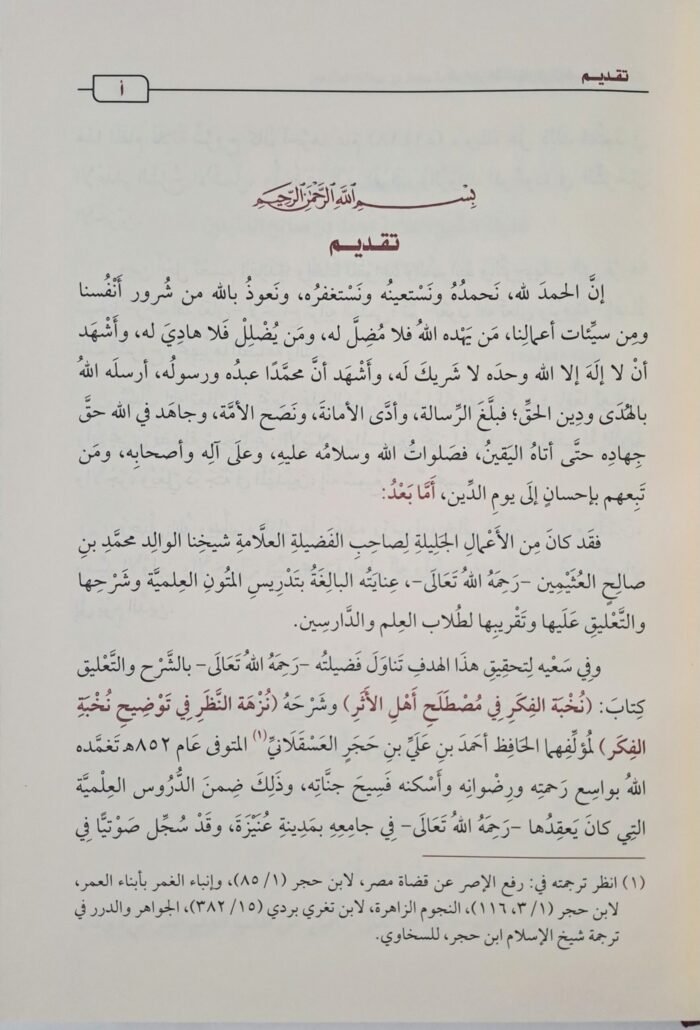 تقديم
أ
بِسْمِ اللَّهِ الرَّحْمَنِ الرَّحِيمِ
تقديم
إنَّ الحمدَ لله، نَحمدُهُ ونَستعينُه ونَسْتغفرُه، ونَعوذُ بالله من شُرور أَنْفُسنا
ومِن سيِّئات أعمالِنا، مَن يَهْده اللهُ فلا مُضِلَّ له، ومَن يُضْلِلْ فَلا هاديَ له، وأَشْهَد
أنْ لا إلَهَ إلا الله وحدَه لا شَريكَ لَه، وأَشْهَد أنَّ محمَّدًا عبدُه ورسولُه، أرسلَه اللهُ
بالهُدَى ودِينِ الحقِّ؛ فبلَّغَ الرِّسالة، وأدَّى الأمانةَ، ونَصَح الأمَّة، وجاهَد في الله حقَّ
جِهادِه حتَّى أتاهُ اليَقينُ، فصَلواتُ الله وسلامُه عليهِ، وعلَى آلِه وأصحابِه، ومَن
تَبِعهم بإحسانٍ إلَى يومِ الدِّين، أَمَّا بَعْدُ:
فقَد كانَ مِن الأَعْمالِ الجَلِيلةِ لِصاحِبِ الفَضيلةِ العلَّامةِ شيخِنا الوالِد محمَّدِ بنِ
صالِحٍ العُثَيْمِين -رَحِمَهُ اللهُ تَعَالَى-، عِنايَتُه البالِغَةُ بتَدْرِيسِ المتُونِ العِلميَّة وشَرْحِها
والتَّعْليقِ عَلَيها وتَقْريبِها لطُلاب العِلم والدَّارسِين.
وفِي سَعْيه لِتحقِيقِ هذَا الهدفِ تَناوَلَ فَضيلتُه -رَحِمَهُ اللهُ تَعَالَى- بالشَّرْح والتَّعْليق
كِتابَ: (نُخْبَة الفِكَرِ فِي مُصْطَلَحِ أَهْلِ الأَثَرِ) وشَرْحَهُ (نُزْهَة النَّظَرِ فِي تَوْضِيحِ نُخْبَةِ
الفِكَر) لمُؤَلِّفِهما الحَافِظ أحمَدَ بنِ عَلَيِّ بنِ حَجَرٍ العَسْقَلانِيِّ(١) المتوفى عَام ٨٥٢هـ تَغمَّده
اللهُ بواسِع رَحمتِه ورِضْوانِه وأَسْكنه فَسِيحَ جنَّاتِه، وذَلِكَ ضِمنَ الدُّرُوس العِلْميَّة
التِي كانَ يَعقِدُها -رَحِمَهُ اللهُ تَعَالَى- فِي جامِعِه بمَدِينةِ عُنَيْزَةَ، وقَدْ سُجِّل صَوْتيًّا فِي
(١) انظر ترجمته في: رفع الإصر عن قضاة مصر، لابن حجر (١/ ٨٥)، وإنباء الغمر بأبناء العمر،
لابن حجر (١/ ٣، ١١٦)، النجوم الزاهرة، لابن تغري بردي (١٥/ ٣٨٢)، الجواهر والدرر في
ترجمة شيخ الإسلام ابن حجر، للسخاوي.